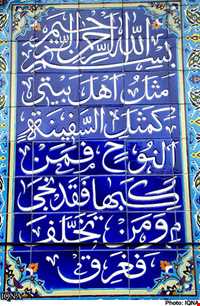 بسم الله الرحمن الرحیم
مثل اهل بیتی
کمثل السفینة
النوح فمن
رکبها فقد نجی
و من تخلف
فغرق
IQNA
Photo: IQNA